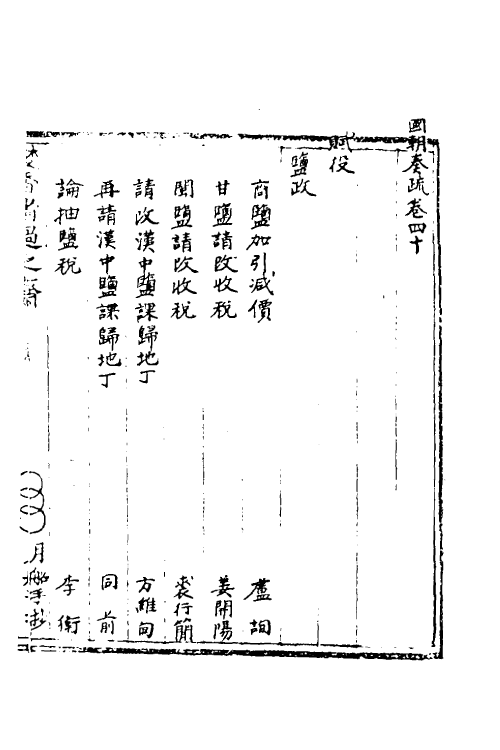 國朝奏疏卷四十
賦役
鹽政
商鹽加引減價 盧詢
甘鹽請改收稅 姜開陽
閩鹽請改收稅 裘行簡
請改漢中鹽課歸地丁 方維甸
再請漢中鹽課歸地丁 同前
論抽鹽稅 李衛
省過之齋